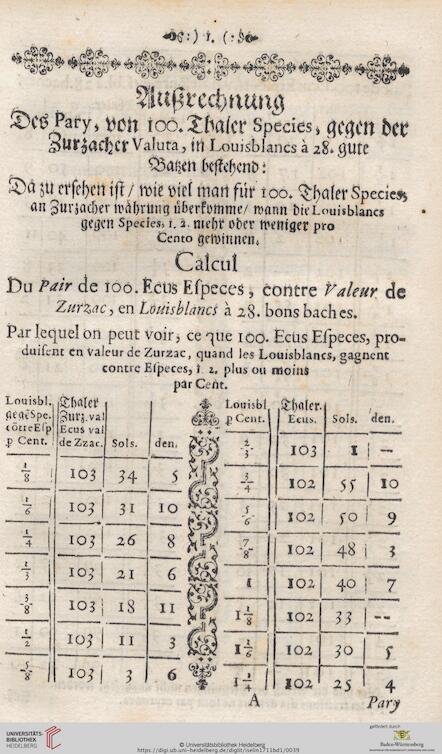 :) 1. (:
Außrechnung
Des Pary, von 100. Thaler Species, gegen der
Zurzacher Valuta, in Louisblancs à 28. gute
Batzen bestehend:
Da zu ersehen ist / wie viel man für 100. Thaler Species,
an Zurzacher währung überkomme / wann die Louisblancs
gegen Species, 1. 2. mehr oder weniger pro
Cento gewinnen.
Calcul
Du Pair de 100. Ecus Especes, contre Valeur de
Zurzac, en Louisblancs à 28. bons baches.
Par lequel on peut voir, ce que 100. Ecus Especes, pro-
duisent en valeur de Zurzac, quand les Louisblancs, gagnent
contre Especes, 1. 2. plus ou moins
par Cent.
Louisbl. gegēSpe. cōtreEsp p Cent. | Thaler Zurz. val Ecus val de Zzac. | Sols. | den.
1/8 | 103 | 34 | 5
1/6 | 103 | 31 | 10
1/4 | 103 | 26 | 8
1/3 | 103 | 21 | 6
3/8 | 103 | 18 | 11
1/2 | 103 | 11 | 3
5/8 | 103 | 3 | 6
Louisbl. p Cent. | Thaler. Ecus. | Sols. | den.
2/3 | 103 | 1 | —
3/4 | 102 | 55 | 10
5/6 | 102 | 50 | 9
7/8 | 102 | 48 | 3
1 | 102 | 40 | 7
1 1/8 | 102 | 33 | --
1 1/6 | 102 | 30 | 5
1 1/4 | 102 | 25 | 4
A Pary
UNIVERSITÄTS-
BIBLIOTHEK
HEIDELBERG
© Universitätsbibliothek Heidelberg
https://digi.ub.uni-heidelberg.de/diglit/iselin1711bd1/0039
gefördert durch
Baden-Württemberg